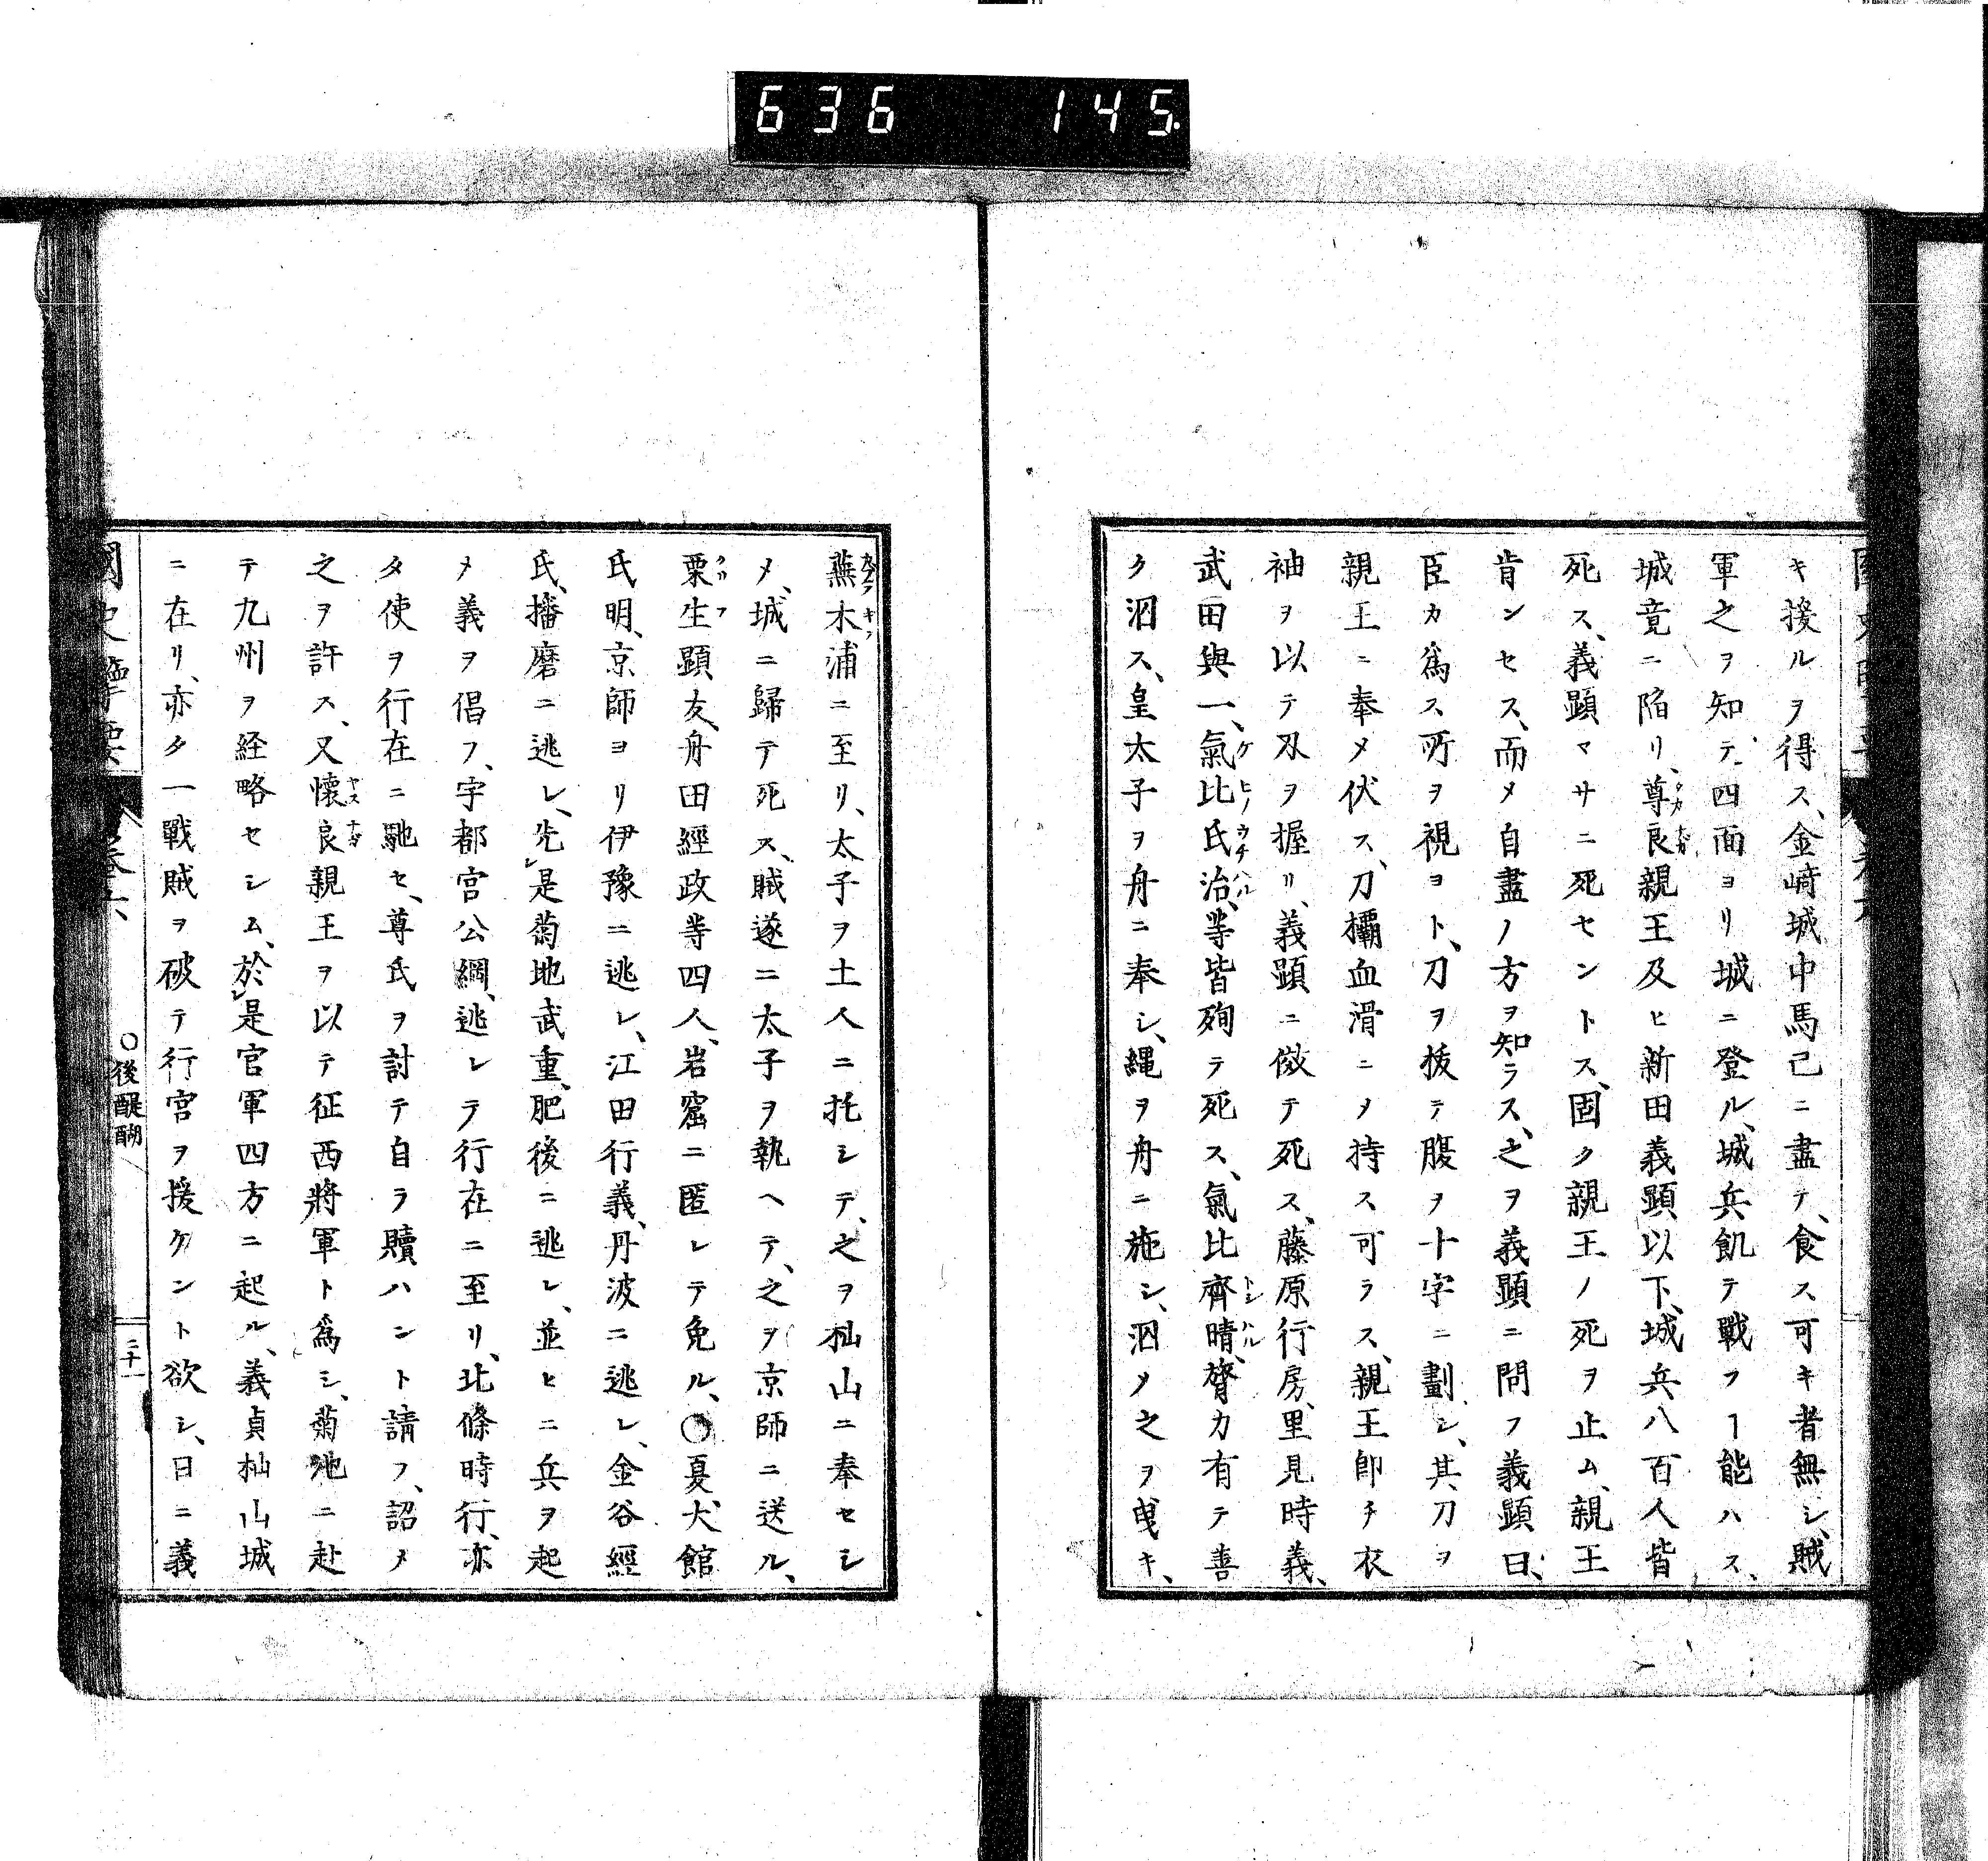 636 145
キ援ルヲ得ス、金﨑城中馬已ニ盡テ、食ス可キ者無シ、賊
軍之ヲ知テ四面ヨリ城ニ登ル、城兵飢テ戰フヿ能ハス、
城竟ニ陷リ、尊良親王及ヒ新田義顯以下、城兵八百人皆
死ス、義顯マサニ死セントス、固ク親王ノ死ヲ止ム、親王
肯ンセス、而メ自盡ノ方ヲ知ラス、之ヲ義顯ニ問フ義顯曰、
臣カ爲ス所ヲ視ヨト、刀ヲ拔テ腹ヲ十字ニ劃シ、其刀ヲ
親王ニ奉メ伏ス、刀欛血滑ニメ持ス可ラス、親王卽チ衣
袖ヲ以テ刄ヲ握リ、義顯ニ傚テ死ス、藤原行房、里見時義、
武田與一、氣比氏治、等皆殉テ死ス、氣比齊晴、膂力有テ善
ク泅ス、皇太子ヲ舟ニ奉シ、縄ヲ舟ニ施シ、泅メ之ヲ曵キ、
蕪木浦ニ至リ、太子ヲ土人ニ托シテ、之ヲ杣山ニ奉セシ
メ、城ニ歸テ死ス、賊遂ニ太子ヲ執ヘテ、之ヲ京師ニ送ル、
栗生顯友、舟田經政等四人、岩窟ニ匿レテ免ル、〇夏、大館
氏明、京師ヨリ伊豫ニ逃レ、江田行義、丹波ニ逃レ、金谷經
氏、播磨ニ逃レ、先是菊地武重、肥後ニ逃レ、並ヒニ兵ヲ起
メ義ヲ倡フ、宇都宮公綱、逃レテ行在ニ至リ、北條時行、亦
タ使ヲ行在ニ馳セ、尊氏ヲ討テ自ラ贖ハント請フ、詔メ
之ヲ許ス、又懷良親王ヲ以テ征西將軍ト爲シ、菊池ニ赴
テ九州ヲ経略セシム、於是官軍四方ニ起ル、義貞杣山城
ニ在リ、亦タ一戰賊ヲ破テ行宮ヲ援ケント欲シ、日ニ義
國史擥要 卷六、 〇後醍醐 二十一